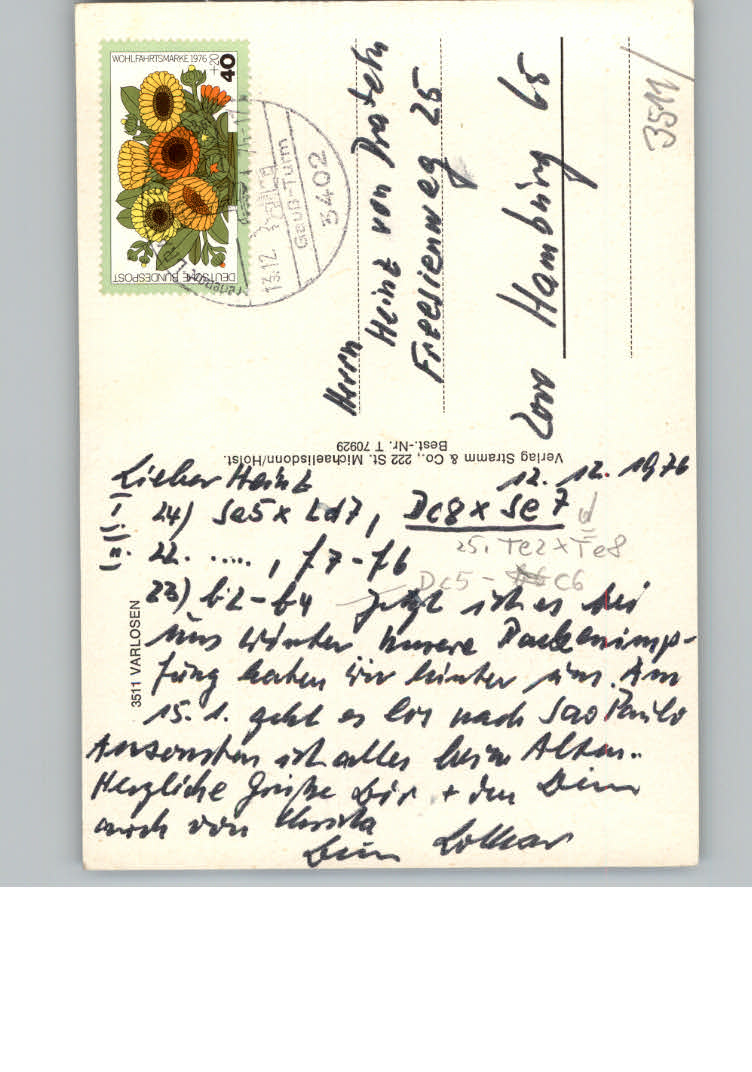 WOHLFAHRTSMARKE 1976
+20
40
DEUTSCHE BUNDESPOST
13.12.
Gauß-Turm
3402
3511/
Herrn
Heinz von
Freesienweg 25
2000 Hamburg 65
Verlag Stramm & Co., 222 St. Michaelisdonn/Holst.
Best.-Nr. T 70929
3511 VARLOSEN
12.12.1976
Lieber Heinz
I. 24) Se5 x Ld7, Dc8 x Se7
25. Te2 x Te8
II. 22. ....., f7-f6
Dc5 - c6
23) b2-b4 Jetzt ist es bei
uns Winter unsere Pockenimp-
fung haben wir hinter uns. Am
15.1. geht es los nach Sao Paulo
Ansonsten ist alles beim Alten.
Herzliche Grüße Dir + den Deinen
auch von Ursula
Dein Lothar